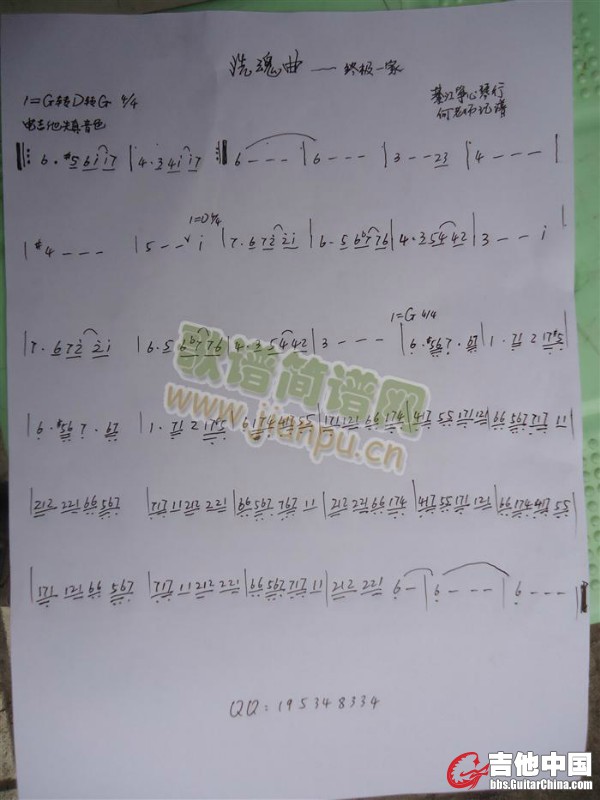 洗魂曲 —— 终极一家
1=G转D转G 4/4
綦江掌心琴行
电吉他失真音色
何老师记谱
‖: 6 · #5 6 i i 7 | 4 · 3 4 i i 7 :‖ 6 - - - | 6 - - - | 3 - - 2 3 | 4 - - - |
| #4 - - - | 5 - - ˅ i | 7 · 6 7 2 2 i | 6 · 5 6 6 7 7 6 | 4 · 3 5 4 4 2 | 3 - - i |
1=D 4/4
| 7 · 6 7 2 2 i | 6 · 5 6 6 7 7 6 | 4 · 3 5 4 4 2 | 3 - - - | 6 · #5 6 7 · 6 7 | 1 · 7 1 2 1 7 #5 |
1=G 4/4
| 6 · #5 6 7 · 6 7 | 1 · 7 1 2 1 7 #5 | 6 1 7 4 4 1 7 5 5 | 1 7 1 1 2 1 6 6 1 7 4 | 4 1 7 5 5 1 7 1 1 2 1 | 6 6 5 6 7 7 1 7 1 1 |
| 2 1 2 2 2 1 6 6 5 6 7 | 7 1 7 1 1 2 1 2 2 2 1 | 6 6 5 6 7 7 6 7 1 1 | 2 1 2 2 2 1 6 6 1 7 4 | 4 1 7 5 5 1 7 1 1 2 1 | 6 6 1 7 4 4 1 7 5 5 |
| 1 7 1 1 2 1 6 6 5 6 7 | 7 1 7 1 1 2 1 2 2 2 1 | 6 6 5 6 7 7 1 7 1 1 | 2 1 2 2 2 1 6 - | 6 - - - | 6 - - - ‖
歌谱简谱网
www.jianpu.cn
QQ:195348334
吉他中国
bbs.GuitarChina.com